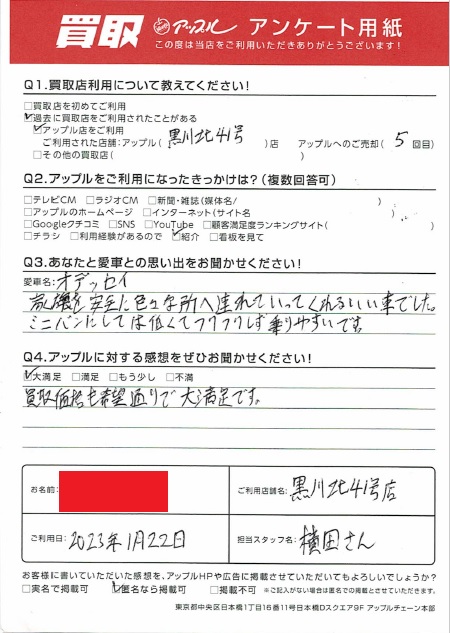 買取 アップル アンケート用紙
この度は当店をご利用いただきありがとうございます!
Q1.買取店利用について教えてください!
□買取店を初めてご利用
☑過去に買取店をご利用されたことがある
☑アップル店をご利用
ご利用された店舗:アップル( 黒川北41号 )店 アップルへのご売却( 5 回目)
□その他の買取店( )
Q2.アップルをご利用になったきっかけは?(複数回答可)
□テレビCM □ラジオCM □新聞・雑誌(媒体名/ )
□アップルのホームページ □インターネット(サイト名 )
□Googleクチコミ □SNS □YouTube □顧客満足度ランキングサイト( )
□チラシ □利用経験があるので ☑紹介 □看板を見て
Q3.あなたと愛車との思い出をお聞かせください!
愛車名:オデッセイ
を安全に色々な所へ連れていってくれるいい車でした。
ミニバンにしては低くてフワフワしず乗りやすいです。
Q4.アップルに対する感想をぜひお聞かせください!
☑大満足 □満足 □もう少し □不満
買取価格も希望通りで大満足です。
お名前:
ご利用店舗名:黒川北41号店
ご利用日:2023年1月22日
担当スタッフ名:横田さん
お客様に書いていただいた感想を、アップルHPや広告に掲載させていただいてもよろしいでしょうか?
□実名で掲載可 ☑匿名なら掲載可 □掲載不可 ※ご記入がない場合は匿名での掲載とさせていただきます。
東京都中央区日本橋1丁目16番11号日本橋Dスクエア9F アップルチェーン本部